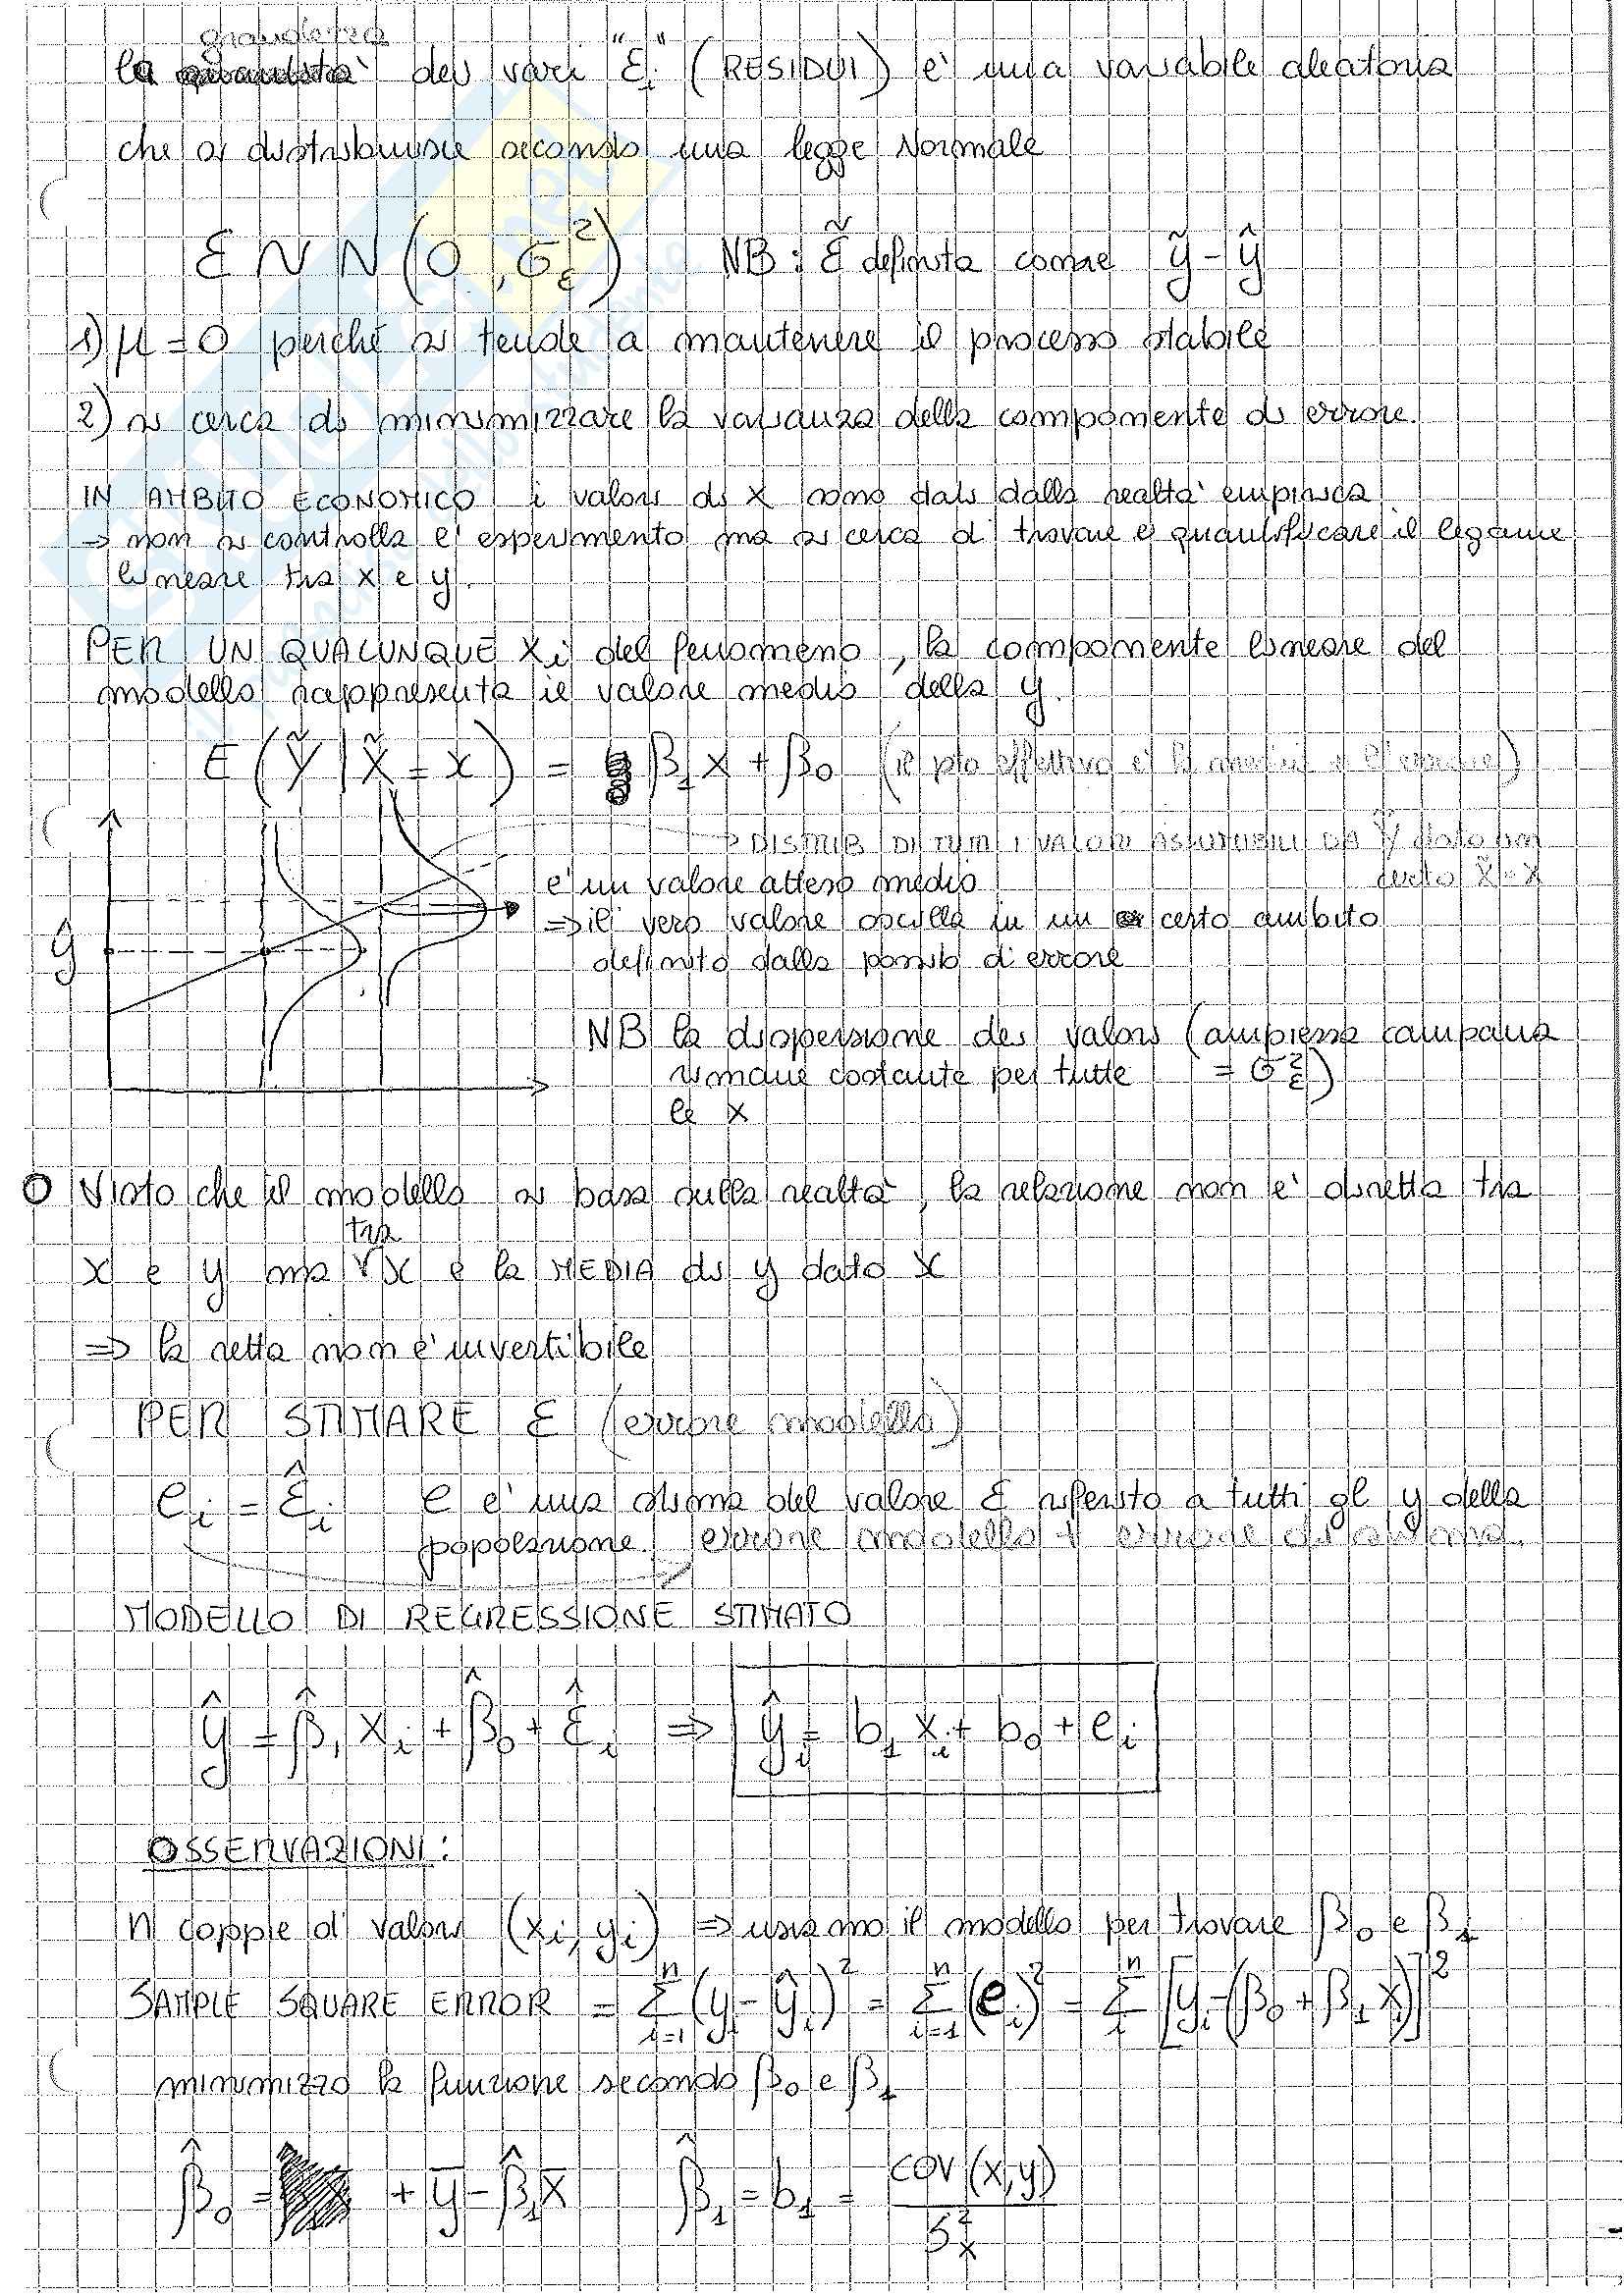 grandezza
la dei vari "εᵢ" (RESIDUI) è una variabile aleatoria
che si distribuisce secondo una legge Normale
ε ~ N(0, σ_ε²) NB: ε̃ definita come ỹ - ŷ
1) μ = 0 perché si tende a mantenere il processo stabile
2) si cerca di minimizzare la varianza della componente di errore.
IN AMBITO ECONOMICO i valori di x sono dati dalla realtà empirica
⇒ non si controlla l'esperimento ma si cerca di trovare e quantificare il legame
lineare tra x e y.
PER UN QUALUNQUE xᵢ del fenomeno, la componente lineare del
modello rappresenta il valore medio della y.
E(Ỹ | X̃ = x) = β₁x + β₀ (il pto effettivo è la media + l'errore)
→ DISTRIB DI TUTTI I VALORI ASSUMIBILI DA Ỹ dato un
certo X̃ = x
è un valore atteso medio
⇒ il vero valore oscilla in un certo ambito
definito dalla possib d'errore
ŷ
NB la dispersione dei valori (ampiezza campana
rimane costante per tutte = σ_ε²)
le x
O Visto che il modello si basa sulla realtà, la relazione non è diretta tra
tra
x e y ma x e la MEDIA di y dato x
⇒ la retta non è invertibile
PER STIMARE ε (errore modello)
eᵢ = ε̂ᵢ e è una stima del valore ε riferito a tutti gl y della
popolazione. errore modello + errore di stima.
MODELLO DI REGRESSIONE STIMATO
ŷ = β̂₁ xᵢ + β̂₀ + ε̂ᵢ ⇒ ŷᵢ = b₁ xᵢ + b₀ + eᵢ
OSSERVAZIONI:
n coppie di valori (xᵢ, yᵢ) ⇒ usiamo il modello per trovare β₀ e β₁
SAMPLE SQUARE ERROR = Σⁿᵢ₌₁ (yᵢ - ŷᵢ)² = Σⁿᵢ₌₁ (eᵢ)² = Σⁿᵢ [yᵢ - (β₀ + β₁ xᵢ)]²
minimizzo la funzione secondo β₀ e β₁
β̂₀ = + ȳ - β̂₁x̄ β̂₁ = b₁ = cov(x,y) / S²ₓ